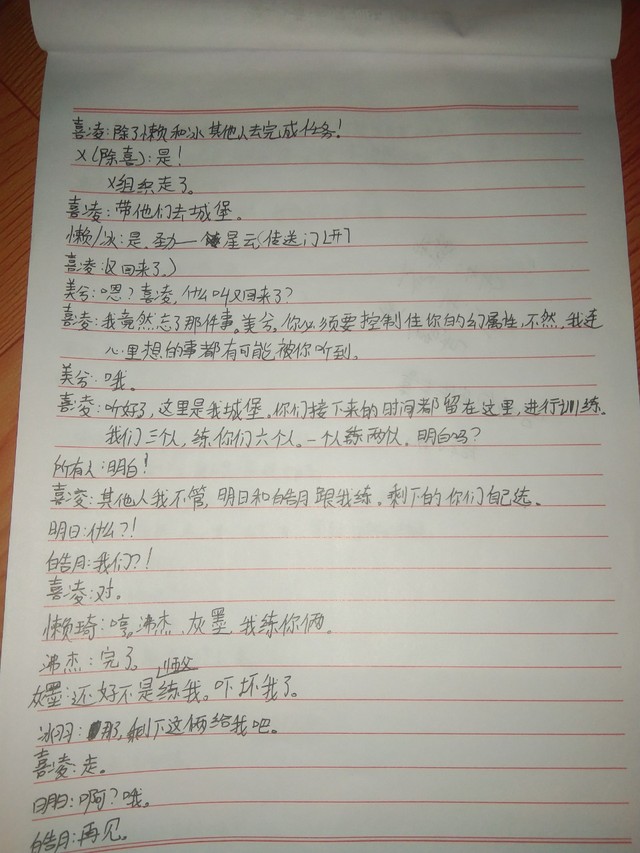 喜凌：除了懒和冰其他人去完成任务！
X(除喜)：是！
X组织走了。
喜凌：带他们去城堡。
懒/冰：是。劲一星云(传送门)开
喜凌：(又回来了。)
美兮：嗯？喜凌，什么叫又回来了？
喜凌：我竟然忘了那件事。美兮，你必须要控制住你的幻属性，不然，我连
心里想的事都有可能被你听到。
美兮：哦。
喜凌：听好了，这里是我城堡。你们接下来的时间都留在这里，进行训练。
我们三个人，练你们六个人。一个人练两个人。明白吗？
所有人：明白！
喜凌：其他人我不管，明日和皓月跟我练。剩下的你们自己选。
明日：什么？！
皓月：我们？！
喜凌：对。
懒琦：哼。沸杰、灰墨，我练你俩。
沸杰：完了。
灰墨：还好不是师父练我。吓坏我了。
冰羽：那，剩下这俩给我吧。
喜凌：走。
明日：啊？哦。
皓月：再见。